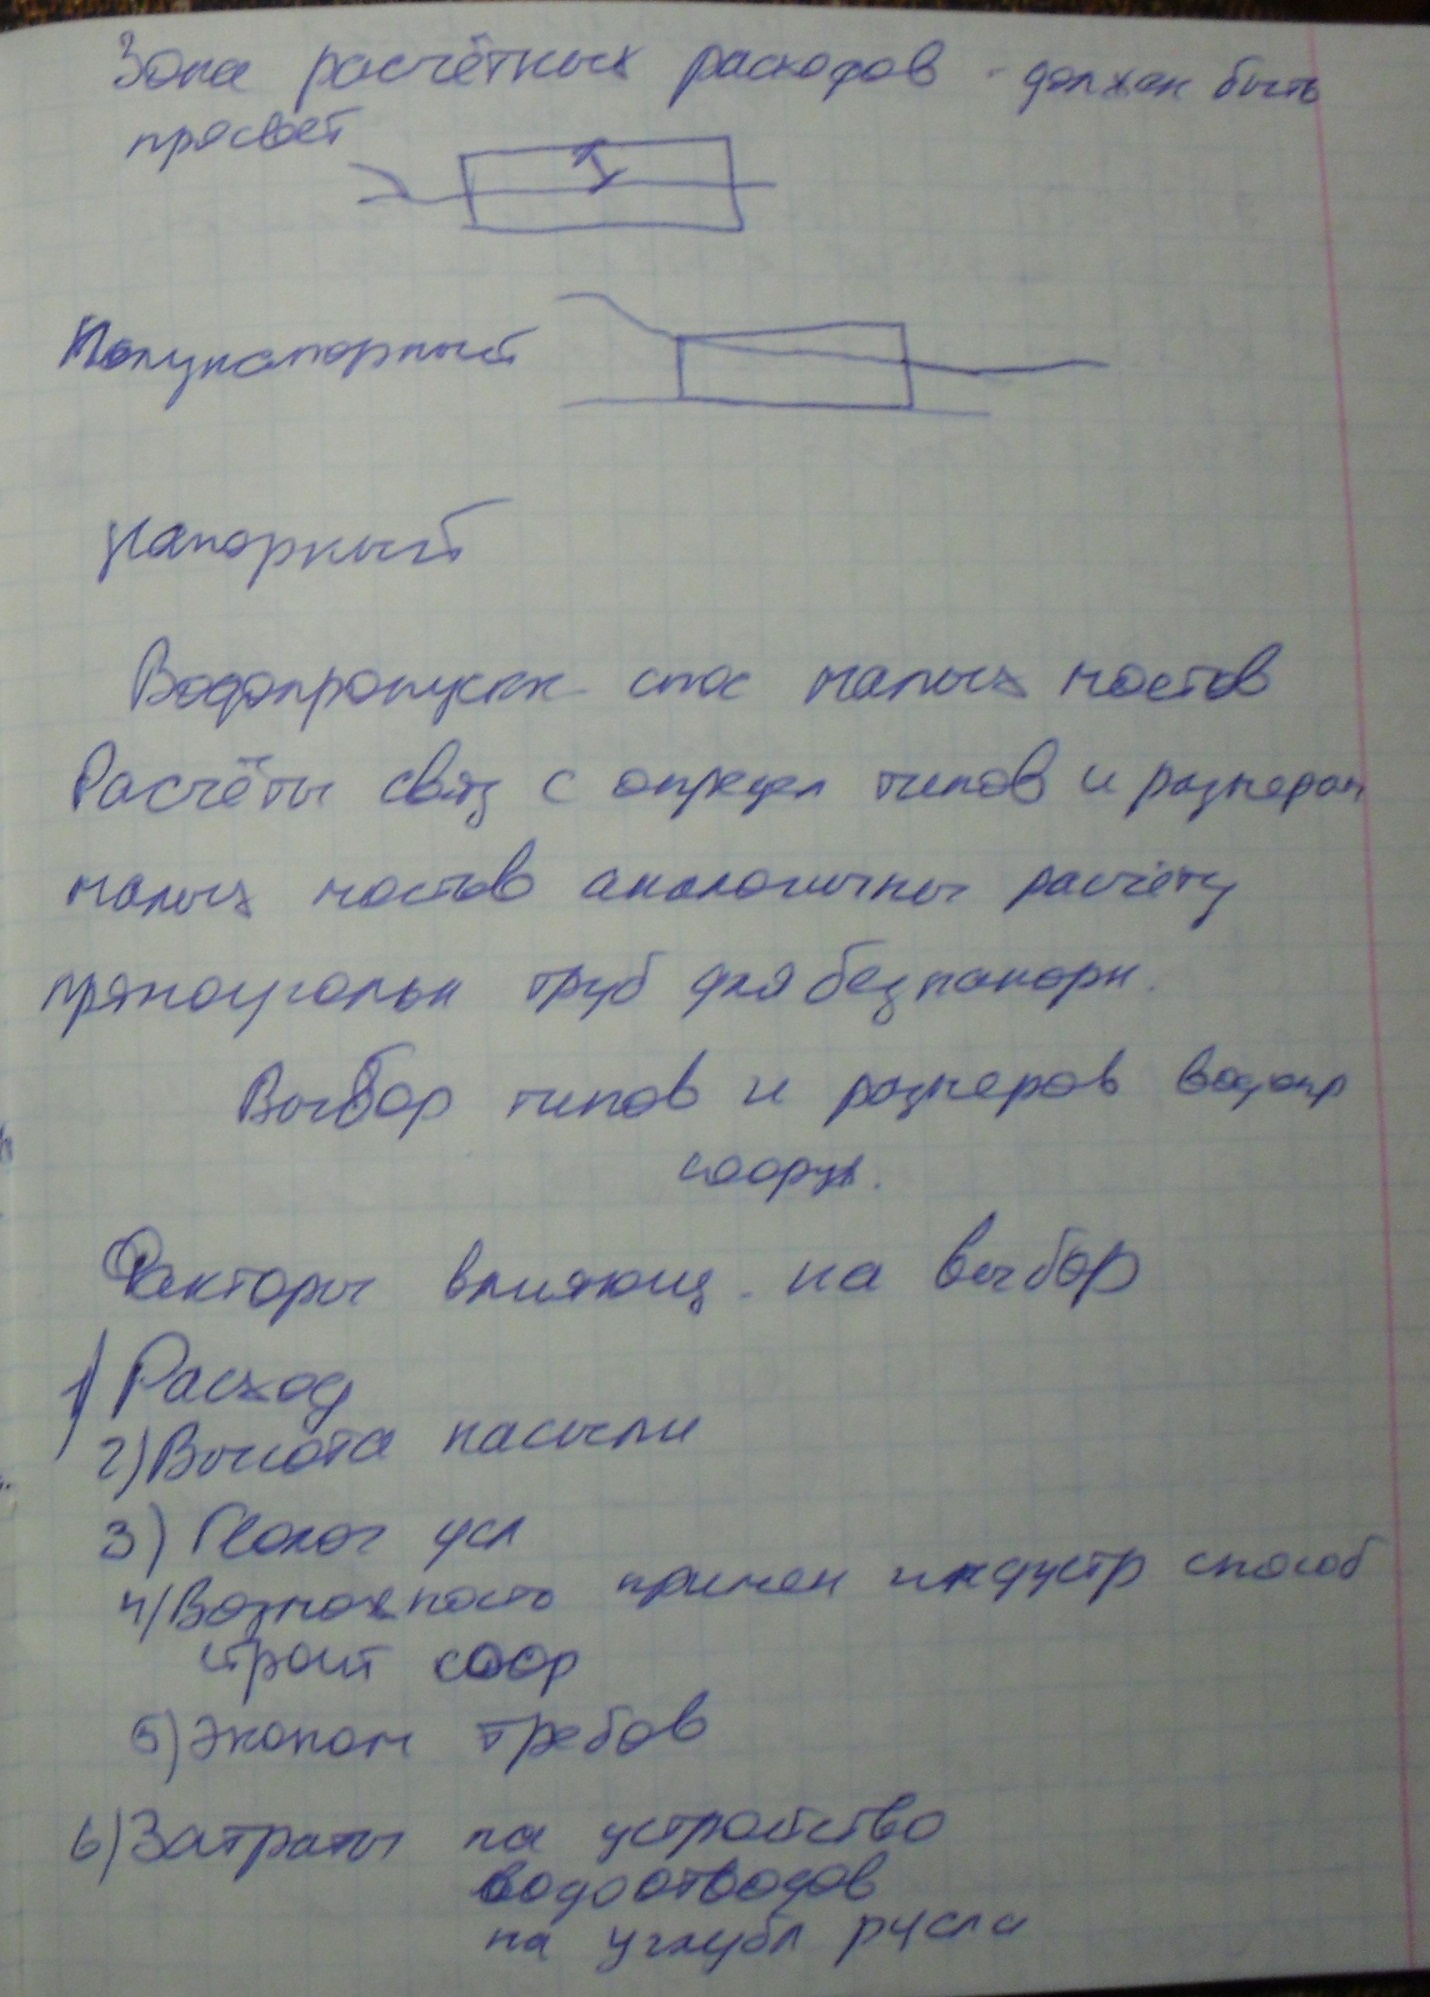 Зона расчётных расходов - должен быть
просвет
Полунапорный
напорный
Водопропускн спос малых мостов
Расчёты связ с определ типов и размерам
малых мостов аналогичны расчёту
прямоугольн труб для безнапорн.
Выбор типов и размеров водопр
сооруж.
Факторы влияющ. на выбор
1) Расход
2) Высота насыпи
3) Геолог усл
4) Возможность примен индустр способ
строит соор
5) Эконом требов
6) Затраты на устройство
водоотводов
на углубл русла